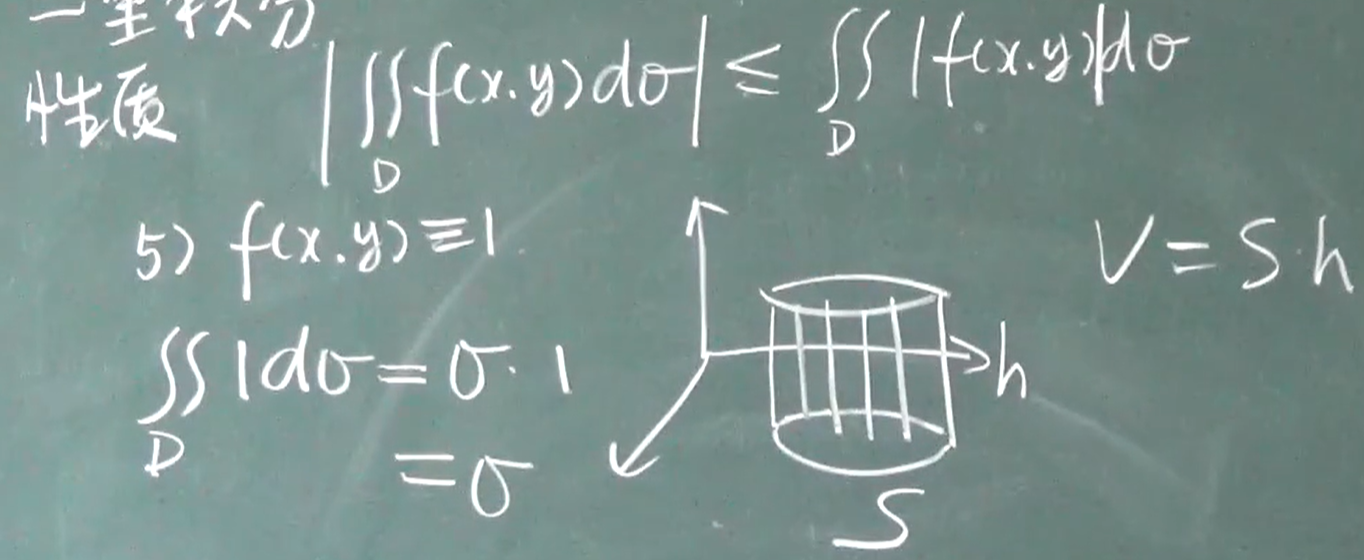 二重积分
性质
|∬_D f(x.y)dσ| ≤ ∬_D |f(x.y)|dσ
5) f(x.y)≡1
∬_D 1dσ = σ·1
=σ
h
S
V=S·h